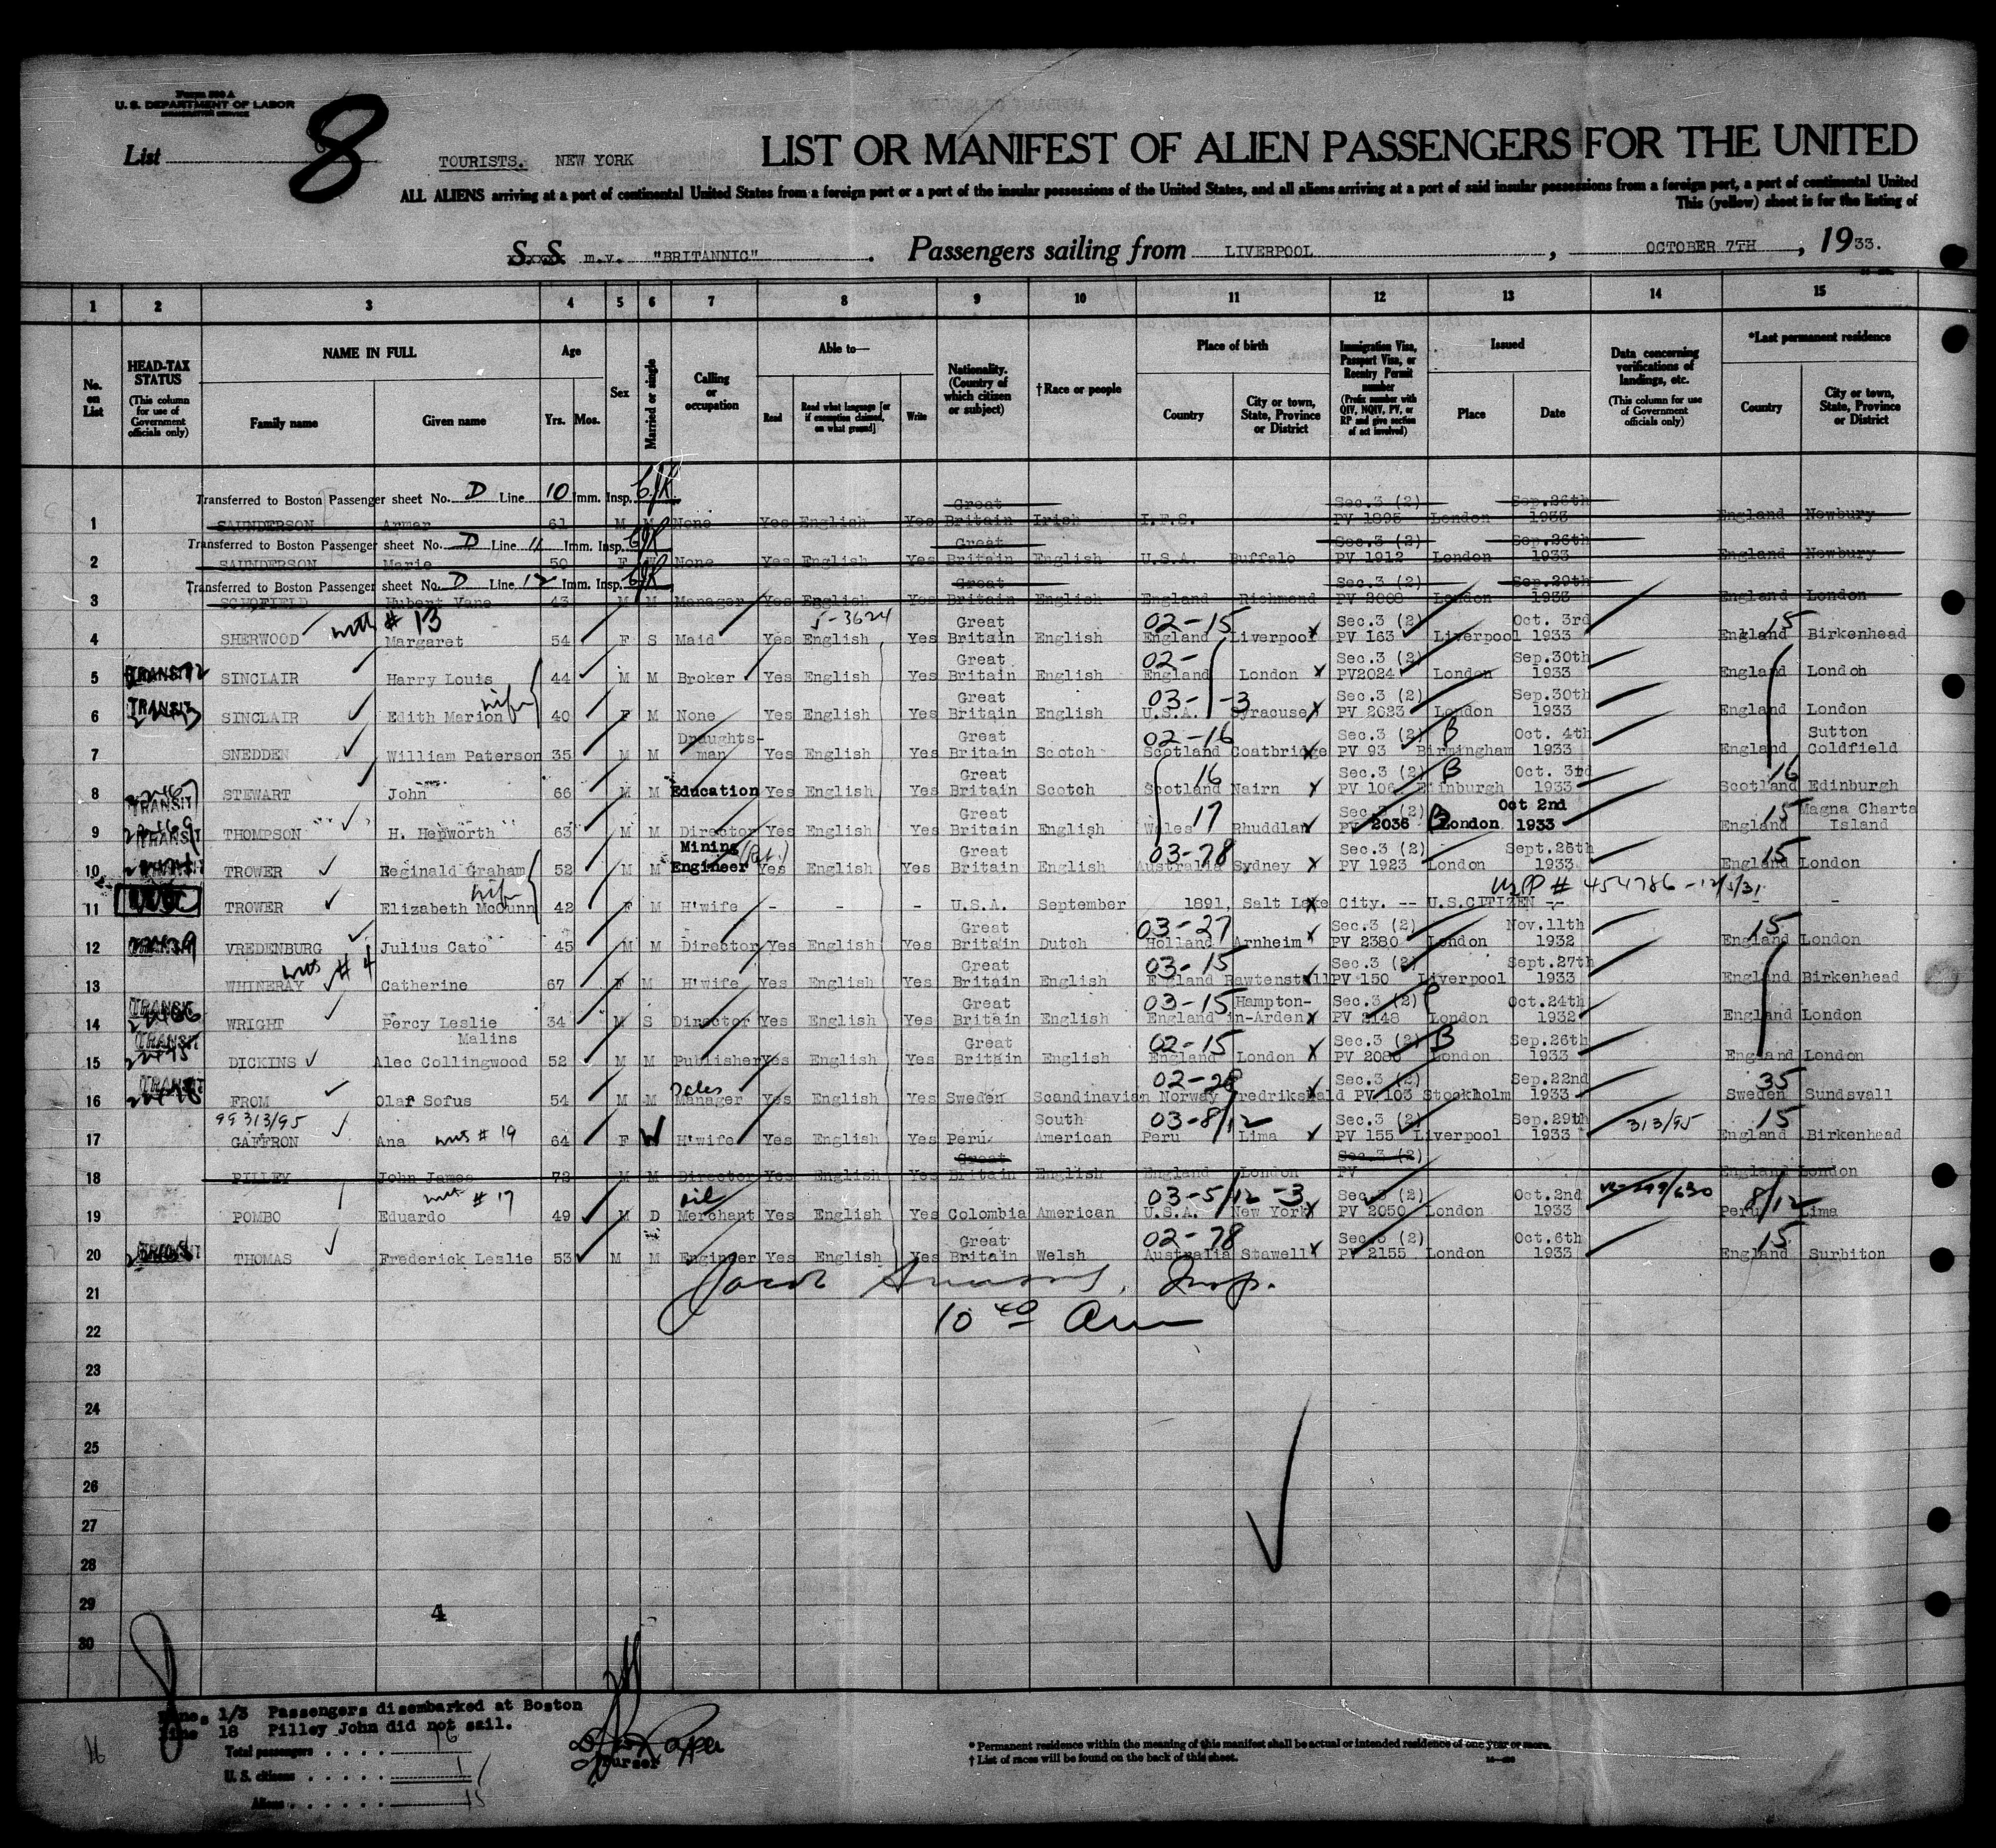 Form 500 A
U. S. DEPARTMENT OF LABOR
IMMIGRATION SERVICE
List 8
TOURISTS. NEW YORK
LIST OR MANIFEST OF ALIEN PASSENGERS FOR THE UNITED
ALL ALIENS arriving at a port of continental United States from a foreign port or a port of the insular possessions of the United States, and all aliens arriving at a port of said insular possessions from a foreign port, a port of continental United
This (yellow) sheet is for the listing of
S. S. m.v. "BRITANNIC" . Passengers sailing from LIVERPOOL , OCTOBER 7TH , 1933.
1 2 3 4 5 6 7 8 9 10 11 12 13 14 15
No. on List
HEAD-TAX STATUS (This column for use of Government officials only)
NAME IN FULL
Family name Given name
Age
Yrs. Mos.
Sex
Married or single
Calling or occupation
Able to—
Read Read what language [or if exemption claimed, on what ground] Write
Nationality. (Country of which citizen or subject)
†Race or people
Place of birth
Country City or town, State, Province or District
Immigration Visa, Passport Visa, or Reentry Permit number (Prefix number with QIV, NQIV, PV, or RP and give section of act involved)
Issued
Place Date
Data concerning verifications of landings, etc. (This column for use of Government officials only)
*Last permanent residence
Country City or town, State, Province or District
Transferred to Boston Passenger sheet No. D Line 10 Imm. Insp.
1 SAUNDERSON Armar 61 M M None Yes English Yes Great Britain Irish I.F.S. Sec.3 (2) PV 1895 London Sep.26th 1933 England Newbury
Transferred to Boston Passenger sheet No. D Line 11 Imm. Insp.
2 SAUNDERSON Marie 50 F None Yes English Yes Great Britain English U.S.A. Buffalo Sec.3 (2) PV 1912 London Sep.26th 1933 England Newbury
Transferred to Boston Passenger sheet No. D Line 12 Imm. Insp.
3 SCHOFIELD Hubert Vane 43 M M Manager Yes English Yes Great Britain English England Richmond Sec.3 (2) PV 2008 London Sep.29th 1933 England London
with # 13 5-3624 02-15 15
4 SHERWOOD Margaret 54 F S Maid Yes English Yes Great Britain English England Liverpool Sec.3 (2) PV 163 Liverpool Oct. 3rd 1933 England Birkenhead
TRANSIT 02-
5 SINCLAIR Harry Louis 44 M M Broker Yes English Yes Great Britain English England London Sec.3 (2) PV2024 London Sep.30th 1933 England London
TRANSIT wife 03- -3
6 SINCLAIR Edith Marion 40 F M None Yes English Yes Great Britain English U.S.A. Syracuse Sec.3 (2) PV 2023 London Sep.30th 1933 England London
02-16 B
7 SNEDDEN William Paterson 35 M M Draughts-man Yes English Yes Great Britain Scotch Scotland Coatbridge Sec.3 (2) PV 93 Birmingham Oct. 4th 1933 England Sutton Coldfield
TRANSIT 16 B 16
8 STEWART John 66 M M Education Yes English Yes Great Britain Scotch Scotland Nairn Sec.3 (2) PV 106 Edinburgh Oct. 3rd 1933 Scotland Edinburgh
TRANSIT 17 B 15
9 THOMPSON H. Hepworth 63 M M Director Yes English Yes Great Britain English Wales Rhuddlan Sec.3 (2) PV 2036 London Oct 2nd 1933 England Magna Charta Island
TRANSIT 03-78 15
10 TROWER Reginald Graham 52 M M Mining Engineer Yes English Yes Great Britain English Australia Sydney Sec.3 (2) PV 1923 London Sept.26th 1933 England London
USC wife USPP # 454786 - 12/5/31
11 TROWER Elizabeth McCunn 42 F M H'wife - - - U.S.A. September 1891, Salt Lake City. -- U.S.CITIZEN -- - -
TRANSIT 03-27 15
12 VREDENBURG Julius Cato 45 M M Director Yes English Yes Great Britain Dutch Holland Arnheim Sec.3 (2) PV 2380 London Nov.11th 1932 England London
with # 4 03-15
13 WHINERAY Catherine 67 F M H'wife Yes English Yes Great Britain English England Rawtenstall Sec.3 (2) PV 150 Liverpool Sept.27th 1933 England Birkenhead
TRANSIT 03-15
14 WRIGHT Percy Leslie Malins 34 M S Director Yes English Yes Great Britain English England Hampton-in-Arden Sec.3 (2) PV 2148 London Oct.24th 1932 England London
TRANSIT 02-15 B
15 DICKINS Alec Collingwood 52 M M Publisher Yes English Yes Great Britain English England London Sec.3 (2) PV 2080 London Sep.26th 1933 England London
TRANSIT Sales 02-28 35
16 FROM Olaf Sofus 54 M M Manager Yes English Yes Sweden Scandinavian Norway Fredrikshald Sec.3 (2) PV 103 Stockholm Sep.22nd 1933 Sweden Sundsvall
99313/95 with # 19 W 03-8/12 313/95 15
17 GAFFRON Ana 64 F H'wife Yes English Yes Peru South American Peru Lima Sec.3 (2) PV 155 Liverpool Sep.29th 1933 England Birkenhead
18 PILLEY John James 73 M M Director Yes English Yes Great Britain English England London Sec.3 (2) PV England London
with # 17 oil 03-5/12 -3 8/12
19 POMBO Eduardo 49 M D Merchant Yes English Yes Colombia American U.S.A. New York Sec.3 (2) PV 2050 London Oct.2nd 1933 Peru Lima
TRANSIT 02-78 15
20 THOMAS Frederick Leslie 53 M M Engineer Yes English Yes Great Britain Welsh Australia Stawell Sec.3 (2) PV 2155 London Oct.6th 1933 England Surbiton
21 Jacob Insp.
22 10 40 am
23
24
25
26
27
28
29 4
30
Lines 1/3 Passengers disembarked at Boston
Line 18 Pilley John did not sail.
Total passengers . . . . 16
U. S. citizens . . . . . 1
Aliens . . . . . . 15
Purser
* Permanent residence within the meaning of this manifest shall be actual or intended residence of one year or more.
† List of races will be found on the back of this sheet.